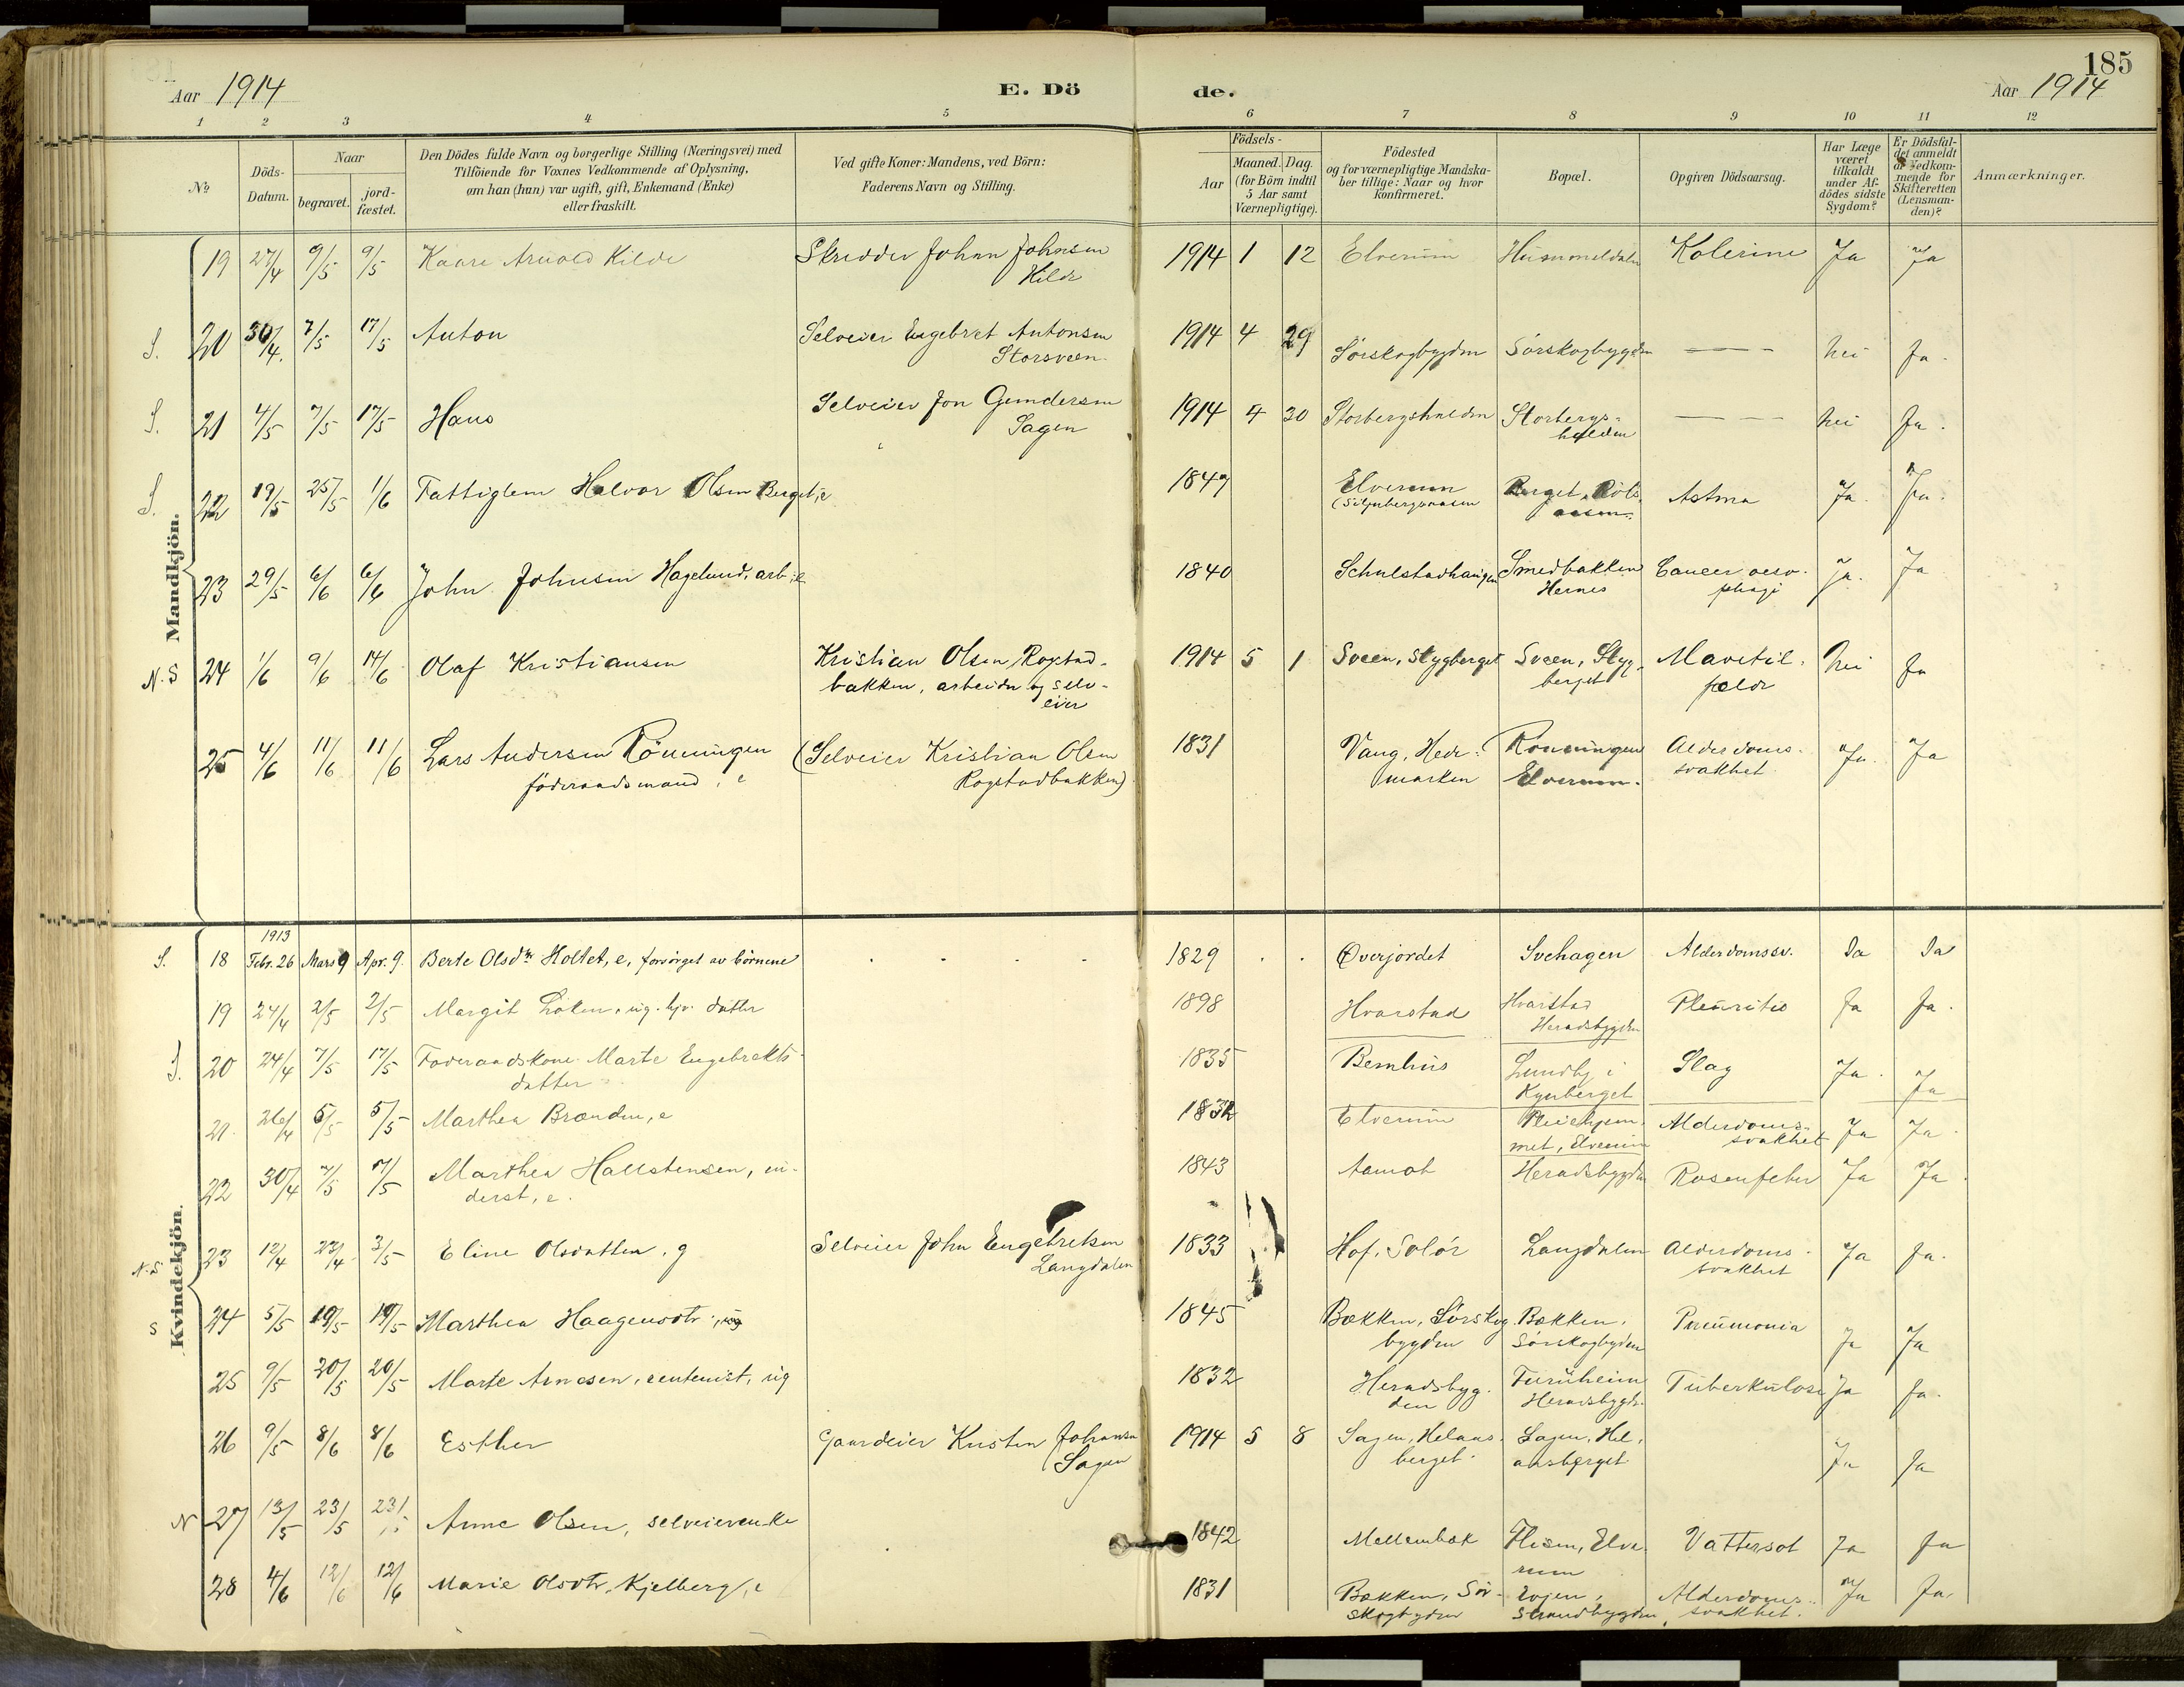 185
Aar 1914 E. Dö de. Aar 1914
1 2 3 4 5 6 7 8 9 10 11 12
No
Döds-Datum.
Naar
begravet.
jord-fæstet.
Den Dödes fulde Navn og borgerlige Stilling (Næringsvei) med
Tilföiende for Voxnes Vedkommende af Oplysning,
om han (hun) var ugift, gift, Enkemand (Enke)
eller fraskilt.
Ved gifte Koner: Mandens, ved Börn:
Faderens Navn og Stilling.
Födsels-
Aar
Maaned. Dag.
(for Börn indtil
5 Aar samt
Værnepligtige).
Födested
og for værnepligtige Mandska-
ber tillige: Naar og hvor
konfirmeret.
Bopæl.
Opgiven Dödsaarsag.
Har Læge
været
tilkaldt
under Af-
dödes sidste
Sygdom?
Er Dödsfal-
det anmeldt
af Vedkom-
mende for
Skifteretten
(Lensman-
den)?
Anmærkninger.
Mandkjön.
19 27/4 9/5 9/5 Kaare Arnold Kilde Skredder Johan Johnsen 1914 1 12 Elverum Kolerine Ja Ja
Kilde
S. 20 30/4. 7/5 17/5 Anton Selveier Engebret Antonsen 1914 4 29 Sørskogbygden Sørskogbygden — nei Ja.
Storsveen
S. 21 4/5 7/5 17/5 Hans Selveier Jon Gundersen 1914 4 30 Storbergshulden Storbergs- — nei Ja.
Sagen hulden
S. 22 19/5 25/5 1/6 Fattiglem Halvor Olsen Berget, e 1847 Elverum Berget, Astma Ja. Ja.
23 29/5 6/6 6/6 John Johnsen Hagelund, arb., e 1840 Schulstadhaugen Smedbakken Cancer oeso- Ja. Ja
Hernes phagi
N. S 24 1/6 9/6 14/6 Olaf Kristiansen Kristian Olsen Rogstad- 1914 5 1 Sveen, Stygberget Sveen, Styg- Mavetil- Nei Ja
bakken, arbeider og selv- berget fælde
eier
25 4/6 11/6 11/6 Lars Andersen Rönningen (Selveier Kristian Olsen 1831 Vang, Hede- Rönningen Alderdoms- Ja. Ja
föderaadsmand, e Rogstadbakken) marken Elverum. svakhet
Kvindekjön.
1913
S. 18 Febr. 26 Mars 9 Apr. 9. Berte Olsdtr Holtet, e, forsörget av börnene 1829 Øverjordet Svehagen Alderdomssv. Ja Ja
19 24/4 2/5 2/5 Margit Löken, ug. hjv. datter 1898 Hvarstad Hvarstad Pleuritis Ja Ja.
Heradsbygden
S. 20 24/4 7/5 17/5 Foderaadskone Marte Engebrekts- 1835 Bemhus Lundby i Slag Ja. Ja
datter Kynberget
21. 26/4 5/5 5/5 Marthea Brænden, e 1832 Elverum Pleiehjem- Alderdoms- Ja Ja
met, Elverum svakhet
22 30/4 7/5 7/5 Marthea Hallstensen, in- 1843 Aamot Heradsbygden Rosenfeber Ja Ja.
derst, e.
N. S. 23 12/4 23/4 3/5 Eline Olsdatter, g Selveier John Engebretsen 1833 Hof, Solör Langdalen Alderdoms- Ja Ja.
Langdalen svakhet
S 24 5/5 19/5 19/5 Marthea Haagensdtr., ug 1845 Bækken, Sørskog- Bækken, Pneumonia Ja Ja
bygden Sørskogbygden
25 9/5 20/5 20/5 Marte Arnesen, rentenist, ug 1832 Heradsbyg- Furuheim Tuberkulose Ja Ja.
den Heradsbygd.
26 9/5 8/6 8/6 Esther Gaardeier Kristen Johansen 1914 5 8 Sagen, Helaas- Sagen, Hel- Ja Ja
Sagen berget. aasberget
N 27 13/5 23/5 23/5 Anne Olsen, selveierenke 1842 Mellembæk Flisen, Elve- Vattersot Ja Ja
rum
28 4/6 12/6 12/6 Marie Olsdtr. Kjelberg, e 1831 Bækken, Sør- Alderdoms- Ja Ja.
skogbygden Strandbygden, svakhet.